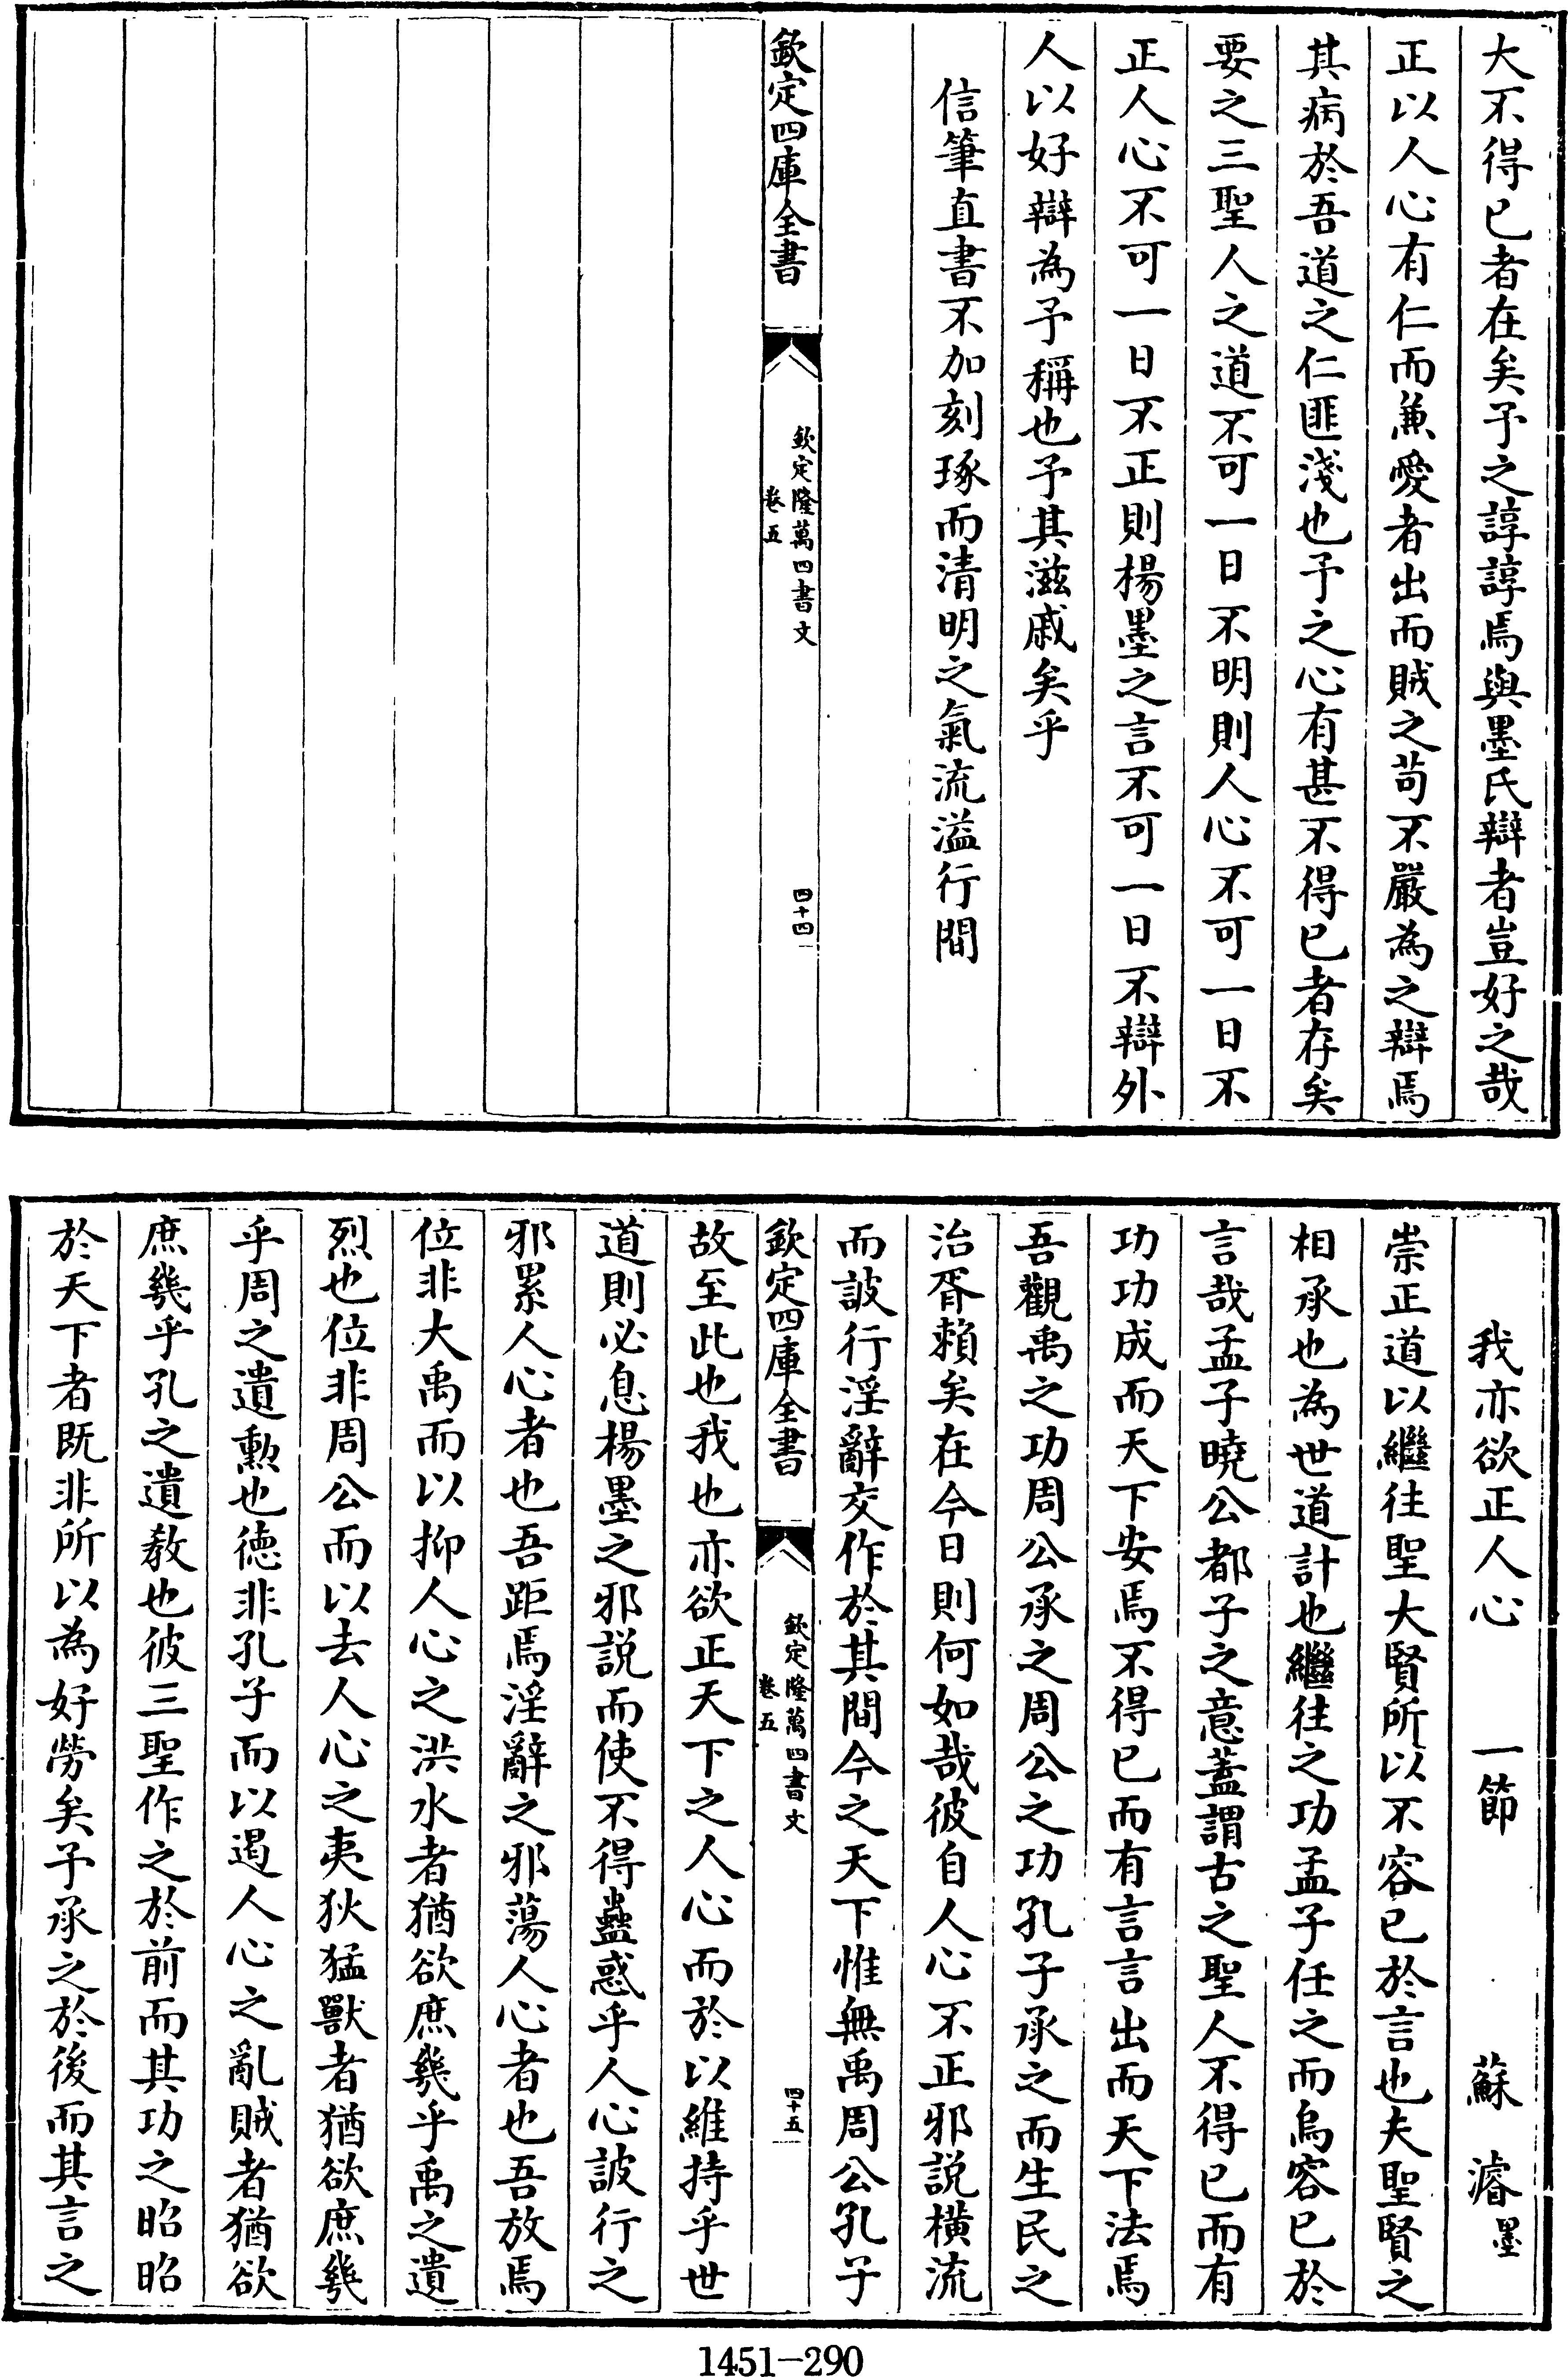 大不得已者在矣予之諄諄焉與墨氏辯者豈好之哉
正以人心有仁而兼愛者出而賊之苟不嚴為之辯焉
其病於吾道之仁匪淺也予之心有甚不得已者存矣
要之三聖人之道不可一日不明則人心不可一日不
正人心不可一日不正則楊墨之言不可一日不辯外
人以好辯為予稱也予其滋戚矣乎
信筆直書不加刻琢而清明之氣流溢行間
欽定四庫全書
欽定隆萬四書文
卷五
四十四
我亦欲正人心 一節 蘇濬墨
崇正道以繼往聖大賢所以不容已於言也夫聖賢之
相承也為世道計也繼往之功孟子任之而烏容已於
言哉孟子曉公都子之意蓋謂古之聖人不得已而有
功功成而天下安焉不得已而有言言出而天下法焉
吾觀禹之功周公承之周公之功孔子承之而生民之
治胥賴矣在今日則何如哉彼自人心不正邪説橫流
而詖行淫辭交作於其間今之天下惟無禹周公孔子
欽定四庫全書
欽定隆萬四書文
卷五
四十五
故至此也我也亦欲正天下之人心而於以維持乎世
道則必息楊墨之邪説而使不得蠱惑乎人心詖行之
邪累人心者也吾距焉淫辭之邪蕩人心者也吾放焉
位非大禹而以抑人心之洪水者猶欲庶幾乎禹之遺
烈也位非周公而以去人心之夷狄猛獸者猶欲庶幾
乎周之遺勲也徳非孔子而以遏人心之亂賊者猶欲
庶幾乎孔之遺教也彼三聖作之於前而其功之昭昭
於天下者既非所以為好勞矣予承之於後而其言之
1451-290